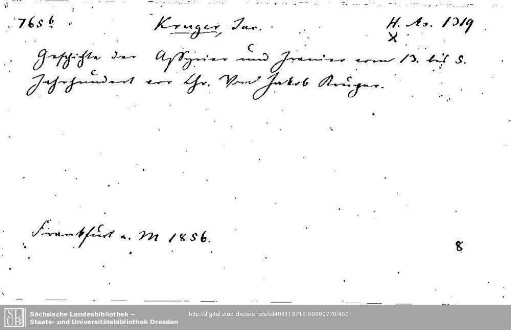 7656. Kruger, Jac. H. As. 1319
X
Geschichte der Assyrier und Iranier vom 13. bis 5.
Jahrhundert vor Chr. Von Jakob Kruger.
Frankfurt a. M 1856.
8
SLUB
Sächsische Landesbibliothek –
Staats- und Universitätsbibliothek Dresden